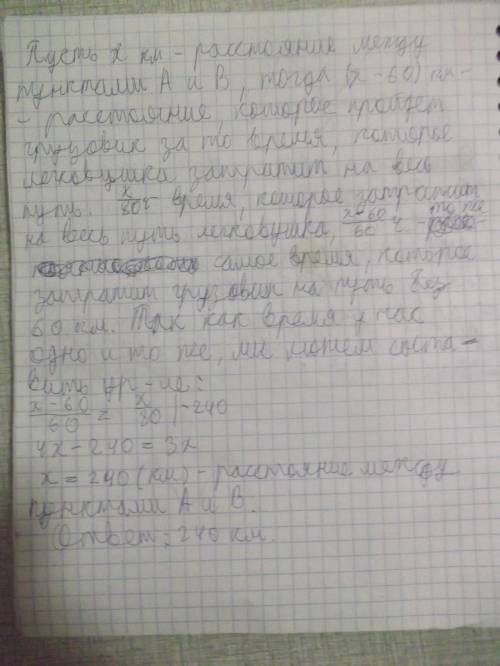 Пусть x км - расстояние между
пунктами А и В, тогда (x-60) км-
- расстояние, которое пройдет
грузовик за то время, которое
легковушка затратит на весь
путь. x/80 ч - время, которое затратит
на весь путь легковушка, x-60/60 ч - то же
самое время, которое
затратит грузовик на путь без
60 км. Так как время у нас
одно и то же, мы можем соста-
вить ур-ие:
x-60/60 = x/80 |·240
4x-240=3x
x=240(км)-расстояние между
пунктами А и В.
Ответ: 240 км.